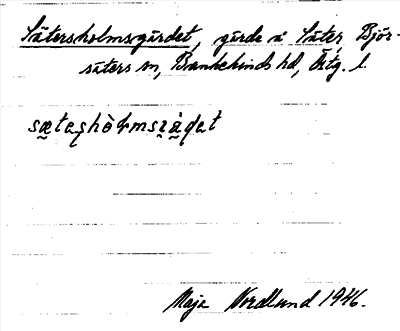 Sätersholmsgärdet, gärde å Säter, Björ-
säters sn, Bankekinds hd, Östg. l.
Maja Nordlund 1946.